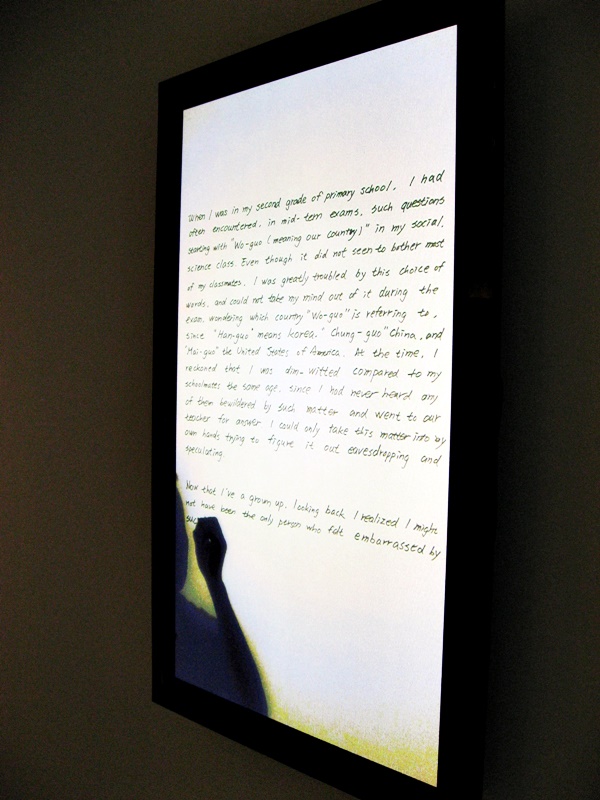 When I was in my second grade of primary school, I had
often encountered, in mid-term exams, such questions
starting with "Wo-guo (meaning our country)" in my social,
science class. Even though it did not seen to bother most
of my classmates. I was greatly troubled by this choice of
words, and could not take my mind out of it during the
exam, wondering which country "Wo-guo" is referring to,
since "Han-guo" means korea, "Chung-guo" China, and
"Mai-guo" the United States of America. At the time, I
reckoned that I was dim-witted compared to my
schoolmates the same age, since I had never heard any
of them bewildered by such matter and went to our
teacher for answer. I could only take this matter into my
own hands trying to figure it out eavesdropping and
speculating.
Now that I've a grown up, looking back I realized I might
not have been the only person who felt embarrassed by
suc